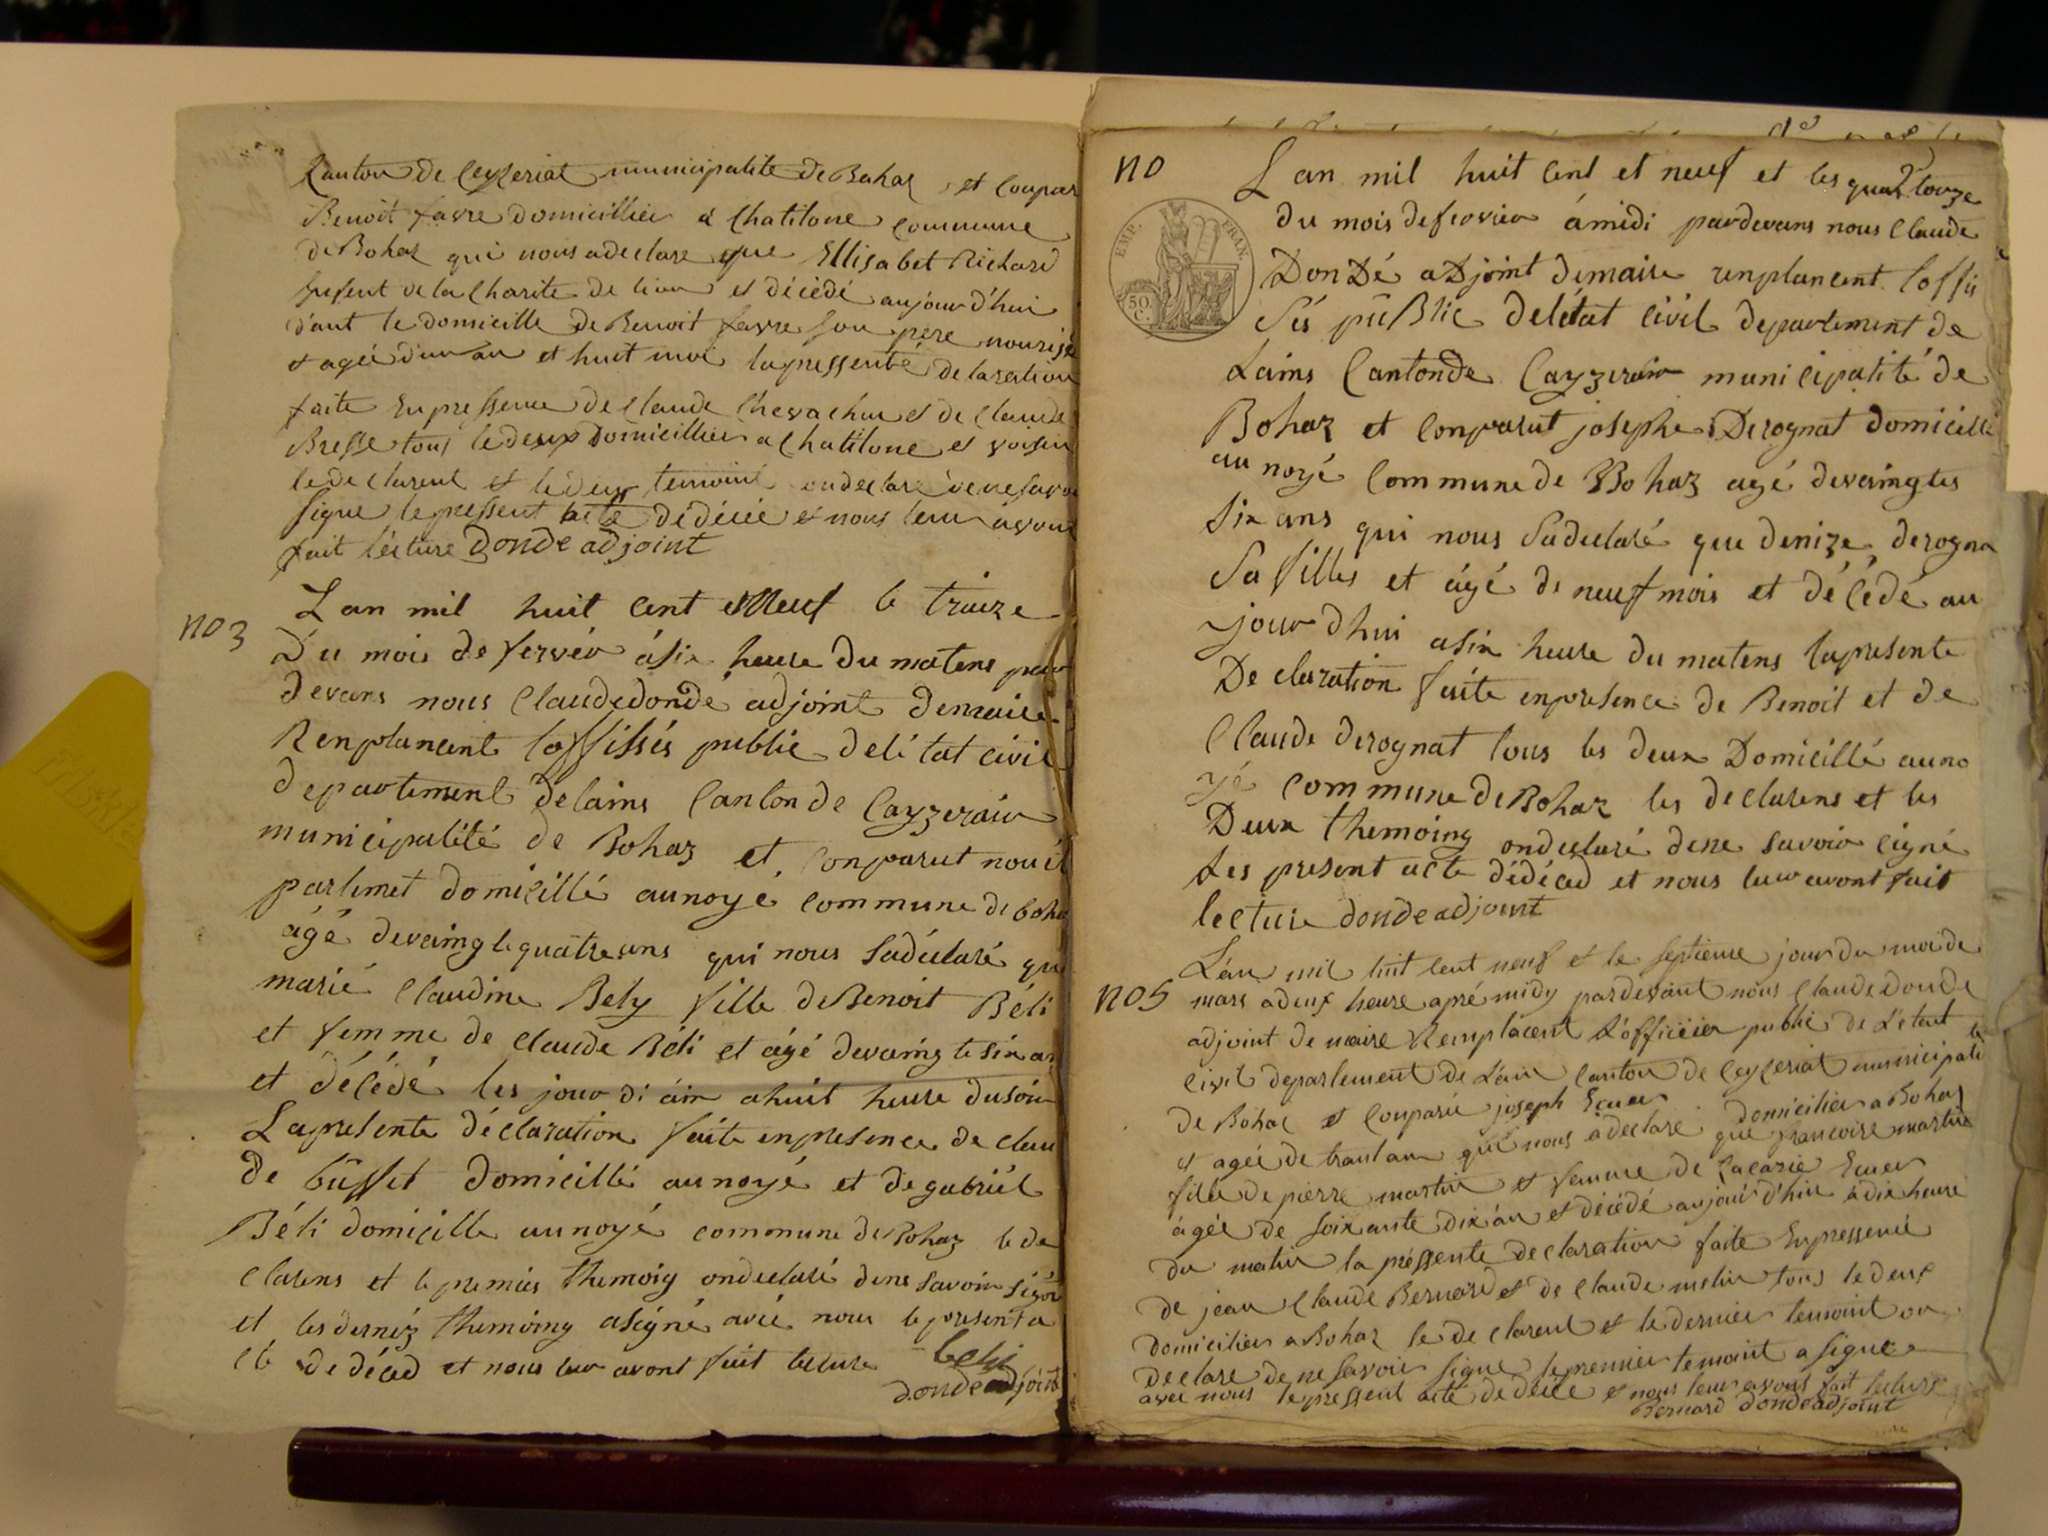 Canton de Ceyzeriat municipalite de Bohaz et Conpar
Benoit favre domicillier a Chatilone commune
de Bohaz qui nous a declare que Ellisabet Richard
de la Charite de lion et décédé aujourd'hui
dant le domicille de Benoit favre son pere nourisié
et agée d'un an et huit moi la pressente declaration
faite En pressence de Claude Chevachu et de Claude
Bresse tous le deux Domicillier a Chatilone et voisin
le declarent et le deux temoint on declare de ne savoir
signe le pressent acte dédécée et nous leur avons
fait lecture donde adjoint
no 3
L an mil huit cent et Neuf le traize
Du mois de fervér á six heure du matens par
devans nous Claude donde adjoint demaire
Renplancent l'offissés public deletat civil
departement delains Canton de Cayzeraiw
municipalité de Bohaz et Conparut nouél
parlemet domicillé aunoyé commune de boha
ágé devaingte quatre ans qui nous sadéclaré que
marié Claudine Bely fille de Benoit Béli
et femme de Claude Béli et ágé devaingte six an
et décédé les jour di áir a huit heure du soir
La presente déclaration faite enpresence de clau
de büsset domicillé aunoyé et de gabriél
Béli domicille aunoyé commune de Bohaz le de
clarens et le premies themoig ondeclaré dene savoir signé
et les derniéz themoing asigné avec nous le present a
cte de décéd et nous leur avont fait lecture beli
donde adjoint
no
L an mil huit cent et neuf et les quattorze
du mois defevrier á midi pardevans nous Claude
Dondé aDjoint demaire renplancent l'offis
sés püBlic deletat civil departement de
Lains Cantonde Cayzeraiw municipalité de
Bohaz et Conparut josephe Derognat domicillé
au noyé Commune de Bohaz agé devaingtes
six ans qui nous sadeclaré que denize derogna
sa filles et ágé de neuf mois et décédé au
jour dhui a six heure du matens la presente
Declaration faite enpresence de Benoit et de
Claude derognat tous les deux Domicillé auno
yé commune de Bohaz les declarens et les
Deux themoing ondeclaré dene savoir cigné
Les present acte dédécéd et nous leur avont fait
lecture donde adjoint
EMP. FRAN.
50 C.
no 5
L'an mil huit cent neuf et le septieme jour du moi de
mars a deux heure apré midy pardevant nous Claude donde
adjoint de maire Remplácent L'officiér public de L'etat
civil departement de L'ain Canton de Ceyzeriat municipalité
de Bohaz et Conparu joseph Ecuer domicilier a Bohaz
et agée de trant an qui nous a declare que francoise martin
fille de pierre martin et femme de Zacarie Ecuer
ágée de soixante dix án et décédé aujour d'hui á dix heure
du matin la préssente declaration faite En pressence
de jean Claude Bernard et de Claude melin tous le deux
domicilier a Bohaz le declarent et le dernier temoint on
declare de ne savoir signe le premier temoint a signe
avec nous le pressent acte de dece et nous leur avons fait lecture
Bernard donde adjoint